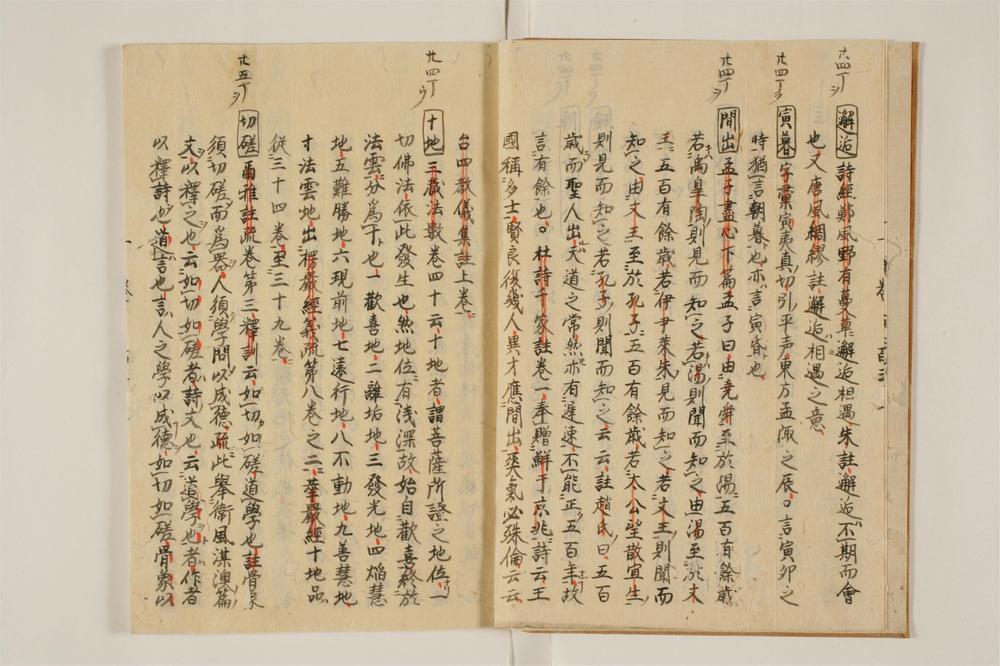 廿四丁ヲ
邂逅 詩經鄭風野有蔓草邂逅相遇朱註邂逅不期而會
也又唐風綢繆註邂逅相遇之意
廿四丁ヲ
寅暮 字彙寅夷真切引平声東方孟陬之辰。言寅卯之
時猶言朝暮也亦言寅昏也
廿四丁ヲ
間出 孟子盡心下篇孟子曰由堯舜至於湯五百有餘歳
若禹皐陶則見而知之若湯則聞而知之由湯至於文
王五百有餘歳若伊尹萊朱見而知之若文王則聞而
知之由文王至於孔子五百有餘歳若太公望散宜生
則見而知之若孔子則聞而知之云云註趙氏曰五百
歳而聖人出天道之常然亦有遲速不能正五百年故
言有餘也。杜詩千家註卷一奉贈鮮于京兆詩云王
國稱多士賢良復幾人異才應間出爽氣必殊倫云云
台四教儀集註上卷
廿四丁ウ
十地 三藏法数卷四十云十地者謂菩薩所證之地位一
切佛法依此發生也然地位有浅深故始自歡喜終於
法雲分為十也一歡喜地二離垢地三發光地四焔慧
地五難勝地六現前地七遠行地八不動地九善慧地
十法雲地出楞嚴經義疏第八卷之二華嚴經十地品
從三十四卷至三十九卷
廿五丁ヲ
切磋 爾雅註疏卷第三釋訓云如切如磋道學也註骨象
須切磋而為器人須學問以成德疏此舉衛風淇澳篇
文以釋之也云如切如磋者詩文也云道學也者作者
以釋詩也道言也言人之學以成德如切如磋骨象以